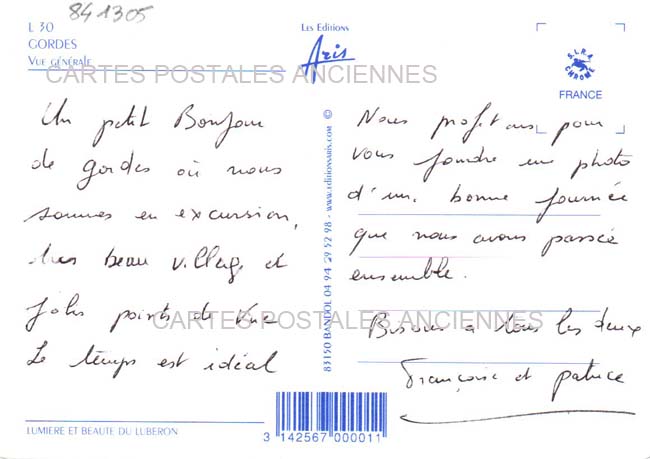 841305
L 30
GORDES
VUE GÉNÉRALE
Les Editions
Aris
S.L.R.A CHROME
FRANCE
CARTES POSTALES ANCIENNES
Un petit Bonjour
de gordes où nous
sommes en excursion,
très beau village et
jolis points de vue
Le temps est idéal
83150 BANDOL 04 94 29 52 98 - www.editionsaris.com ©
Nous profitons pour
vous joindre une photo
d'une bonne journée
que nous avons passée
ensemble.
Bisous à tous les deux
Françoise et patrice
CARTES POSTALES ANCIENNES
LUMIERE ET BEAUTE DU LUBERON
3 142567 000011